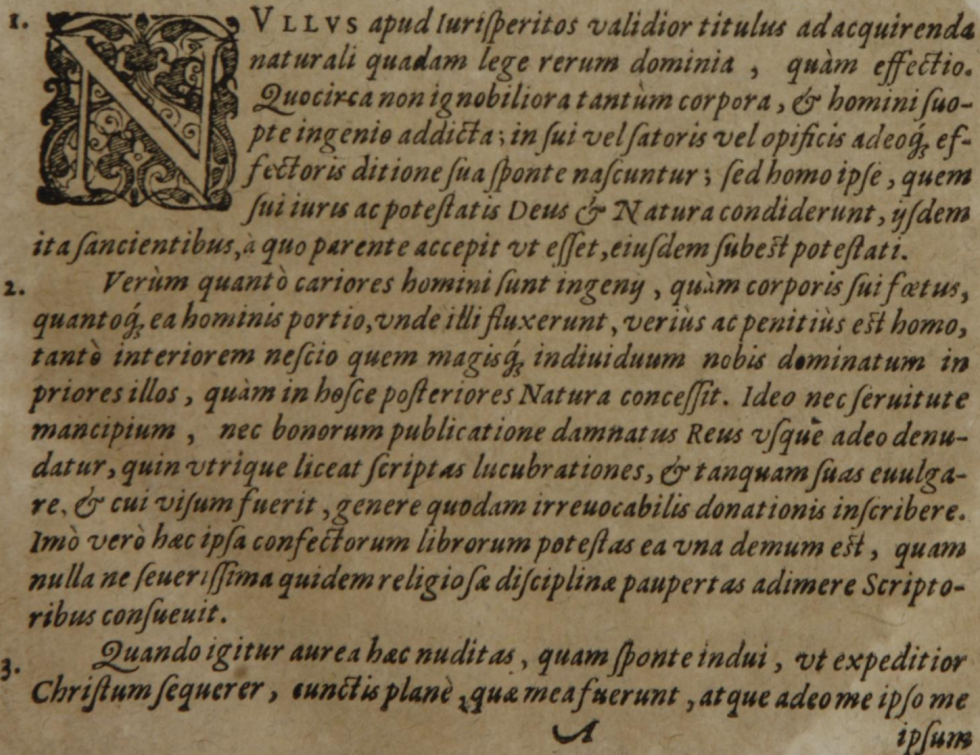 1. NVLLVS apud Iuriſperitos validior titulus ad acquirenda
naturali quadam lege rerum dominia , quàm effectio.
Quocirca non ignobiliora tantùm corpora, & homini ſuo-
pte ingenio addicta; in ſui vel ſatoris vel opificis adeoq́; ef-
fectoris ditione ſua ſponte naſcuntur; ſed homo ipſe, quem
ſui iuris ac poteſtatis Deus & Natura condiderunt, ijſdem
ita ſancientibus, à quo parente accepit vt eſſet, eiuſdem ſubeſt poteſtati.
2. Verùm quantò cariores homini ſunt ingenij, quàm corporis ſui fœtus,
quantoq́; ea hominis portio, vnde illi fluxerunt, veriùs ac penitiùs eſt homo,
tantò interiorem neſcio quem magisq́; indiuiduum nobis dominatum in
priores illos, quàm in hoſce poſteriores Natura conceſſit. Ideo nec ſeruitute
mancipium, nec bonorum publicatione damnatus Reus vſque adeo denu-
datur, quin vtrique liceat ſcriptas lucubrationes, & tanquam ſuas euulga-
re, & cui viſum fuerit, genere quodam irreuocabilis donationis inſcribere.
Imò verò hæc ipſa confectorum librorum poteſtas ea vna demum eſt, quam
nulla ne ſeueriſſima quidem religioſæ diſciplinæ paupertas adimere Scripto-
ribus conſueuit.
3. Quando igitur aurea hæc nuditas, quam ſponte indui, vt expeditior
Chriſtum ſequerer, cunctis planè, quæ mea fuerunt, atque adeo me ipſo me
ipſum